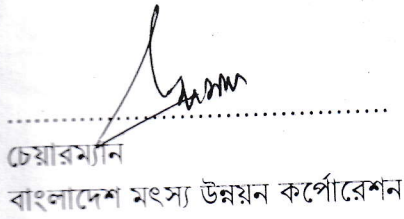 চেয়ারম্যান
বাংলাদেশ মৎস্য উন্নয়ন কর্পোরেশন